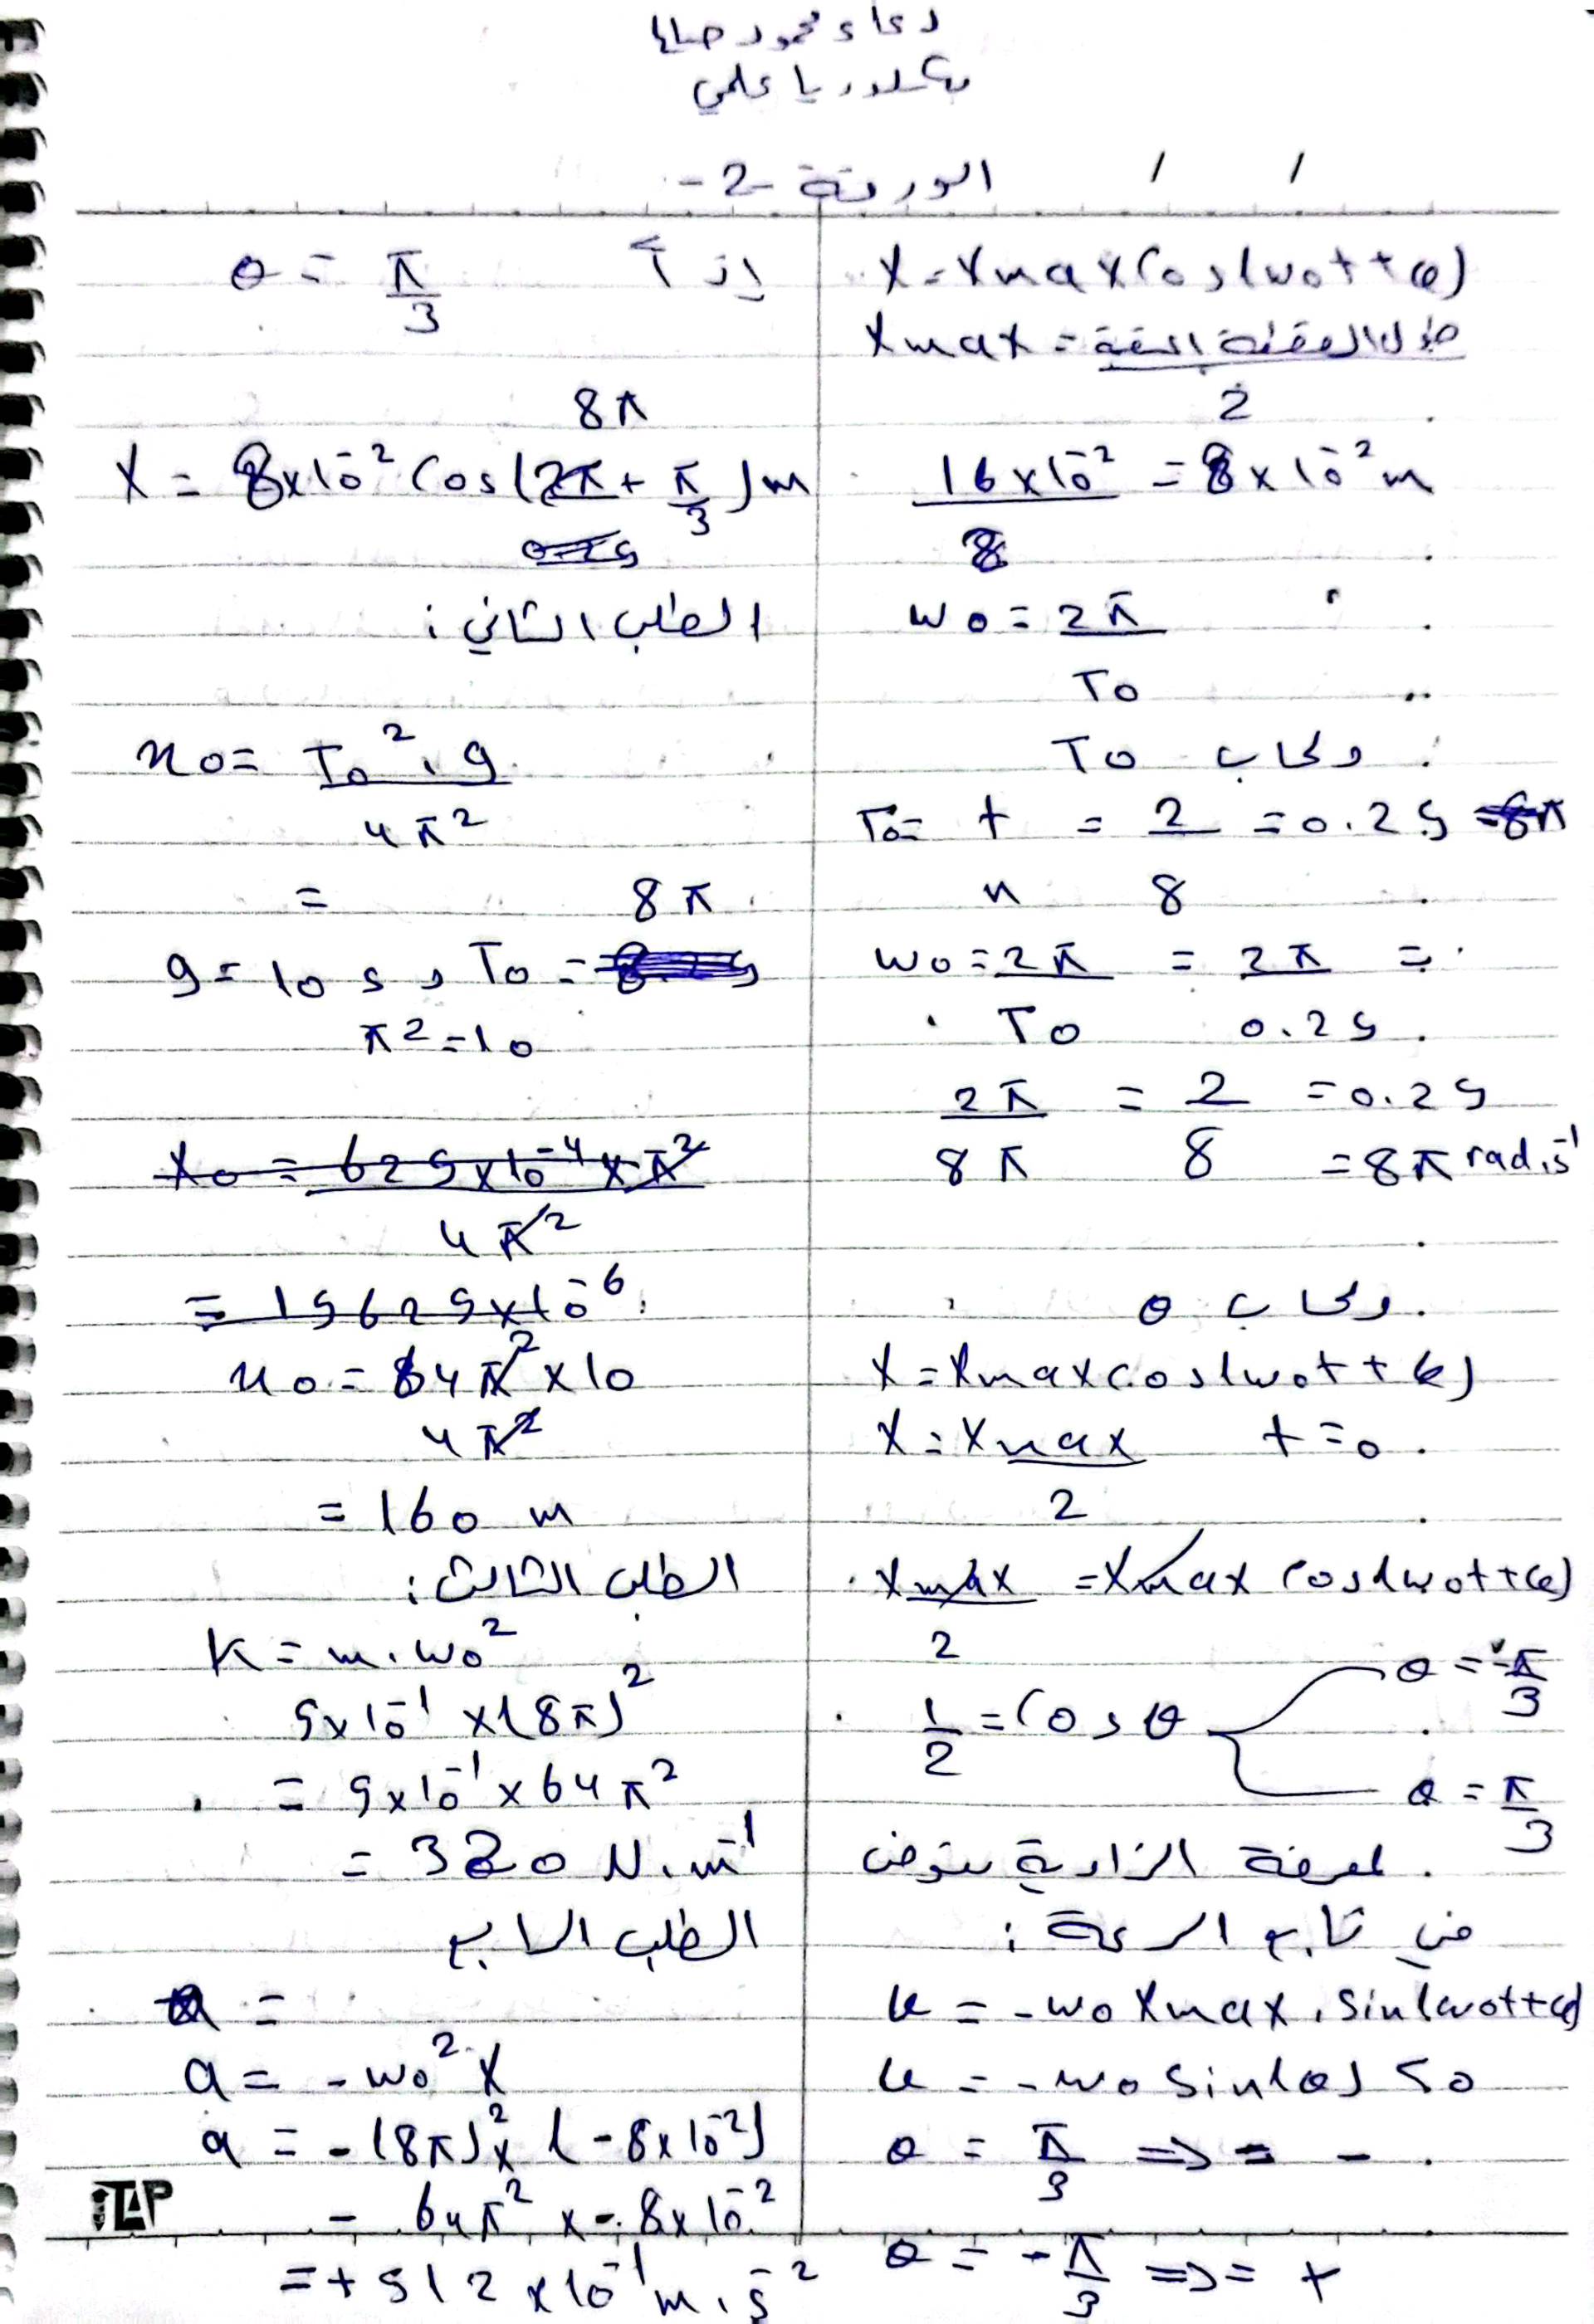 دعاء محمود صلاح
بكالوريا علمي
الورقة -2-
/ /
X = Xmax Cos(ωot + φ)
Xmax = طول القطعة المستقيمة / 2
16x10⁻² / 2 = 8x10⁻² m
ωo = 2π / To
ولحساب To
To = t / n = 2 / 8 = 0.25
ωo = 2π / To = 2π / 0.25 =
2π / 8π = 2 / 8 = 0.25
= 8π rad.s⁻¹
ولحساب θ
X = Xmax cos(ωot + φ)
X = Xmax / 2 t = 0
Xmax / 2 = Xmax cos(ωot + φ)
1/2 = Cos θ θ = -π/3
θ = π/3
لمعرفة الزاوية نعوض
في تابع السرعة :
v = -ωo Xmax . Sin(ωot + φ)
v = -ωo Sin(θ) < 0
θ = π/3 => = -
θ = -π/3 => = +
إذاً θ = π/3
8π
X = 8x10⁻² Cos(2π + π/3) m
0.25
الطلب الثاني :
xo = To² . g / 4π²
= 8π
g = 10 s , To =
π² = 10
Xo = 625x10⁻⁴ x π² / 4π²
= 15625x10⁻⁶
xo = 64π² x 10 / 4π²
= 160 m
الطلب الثالث :
K = m . ωo²
5x10⁻¹ x (8π)²
= 5x10⁻¹ x 64π²
= 320 N.m⁻¹
الطلب الرابع
a =
a = -ωo² X
a = -(8π)² x (-8x10⁻²)
- 64π² x -8x10⁻²
= + 512 x 10⁻¹ m.s⁻²
iTAP